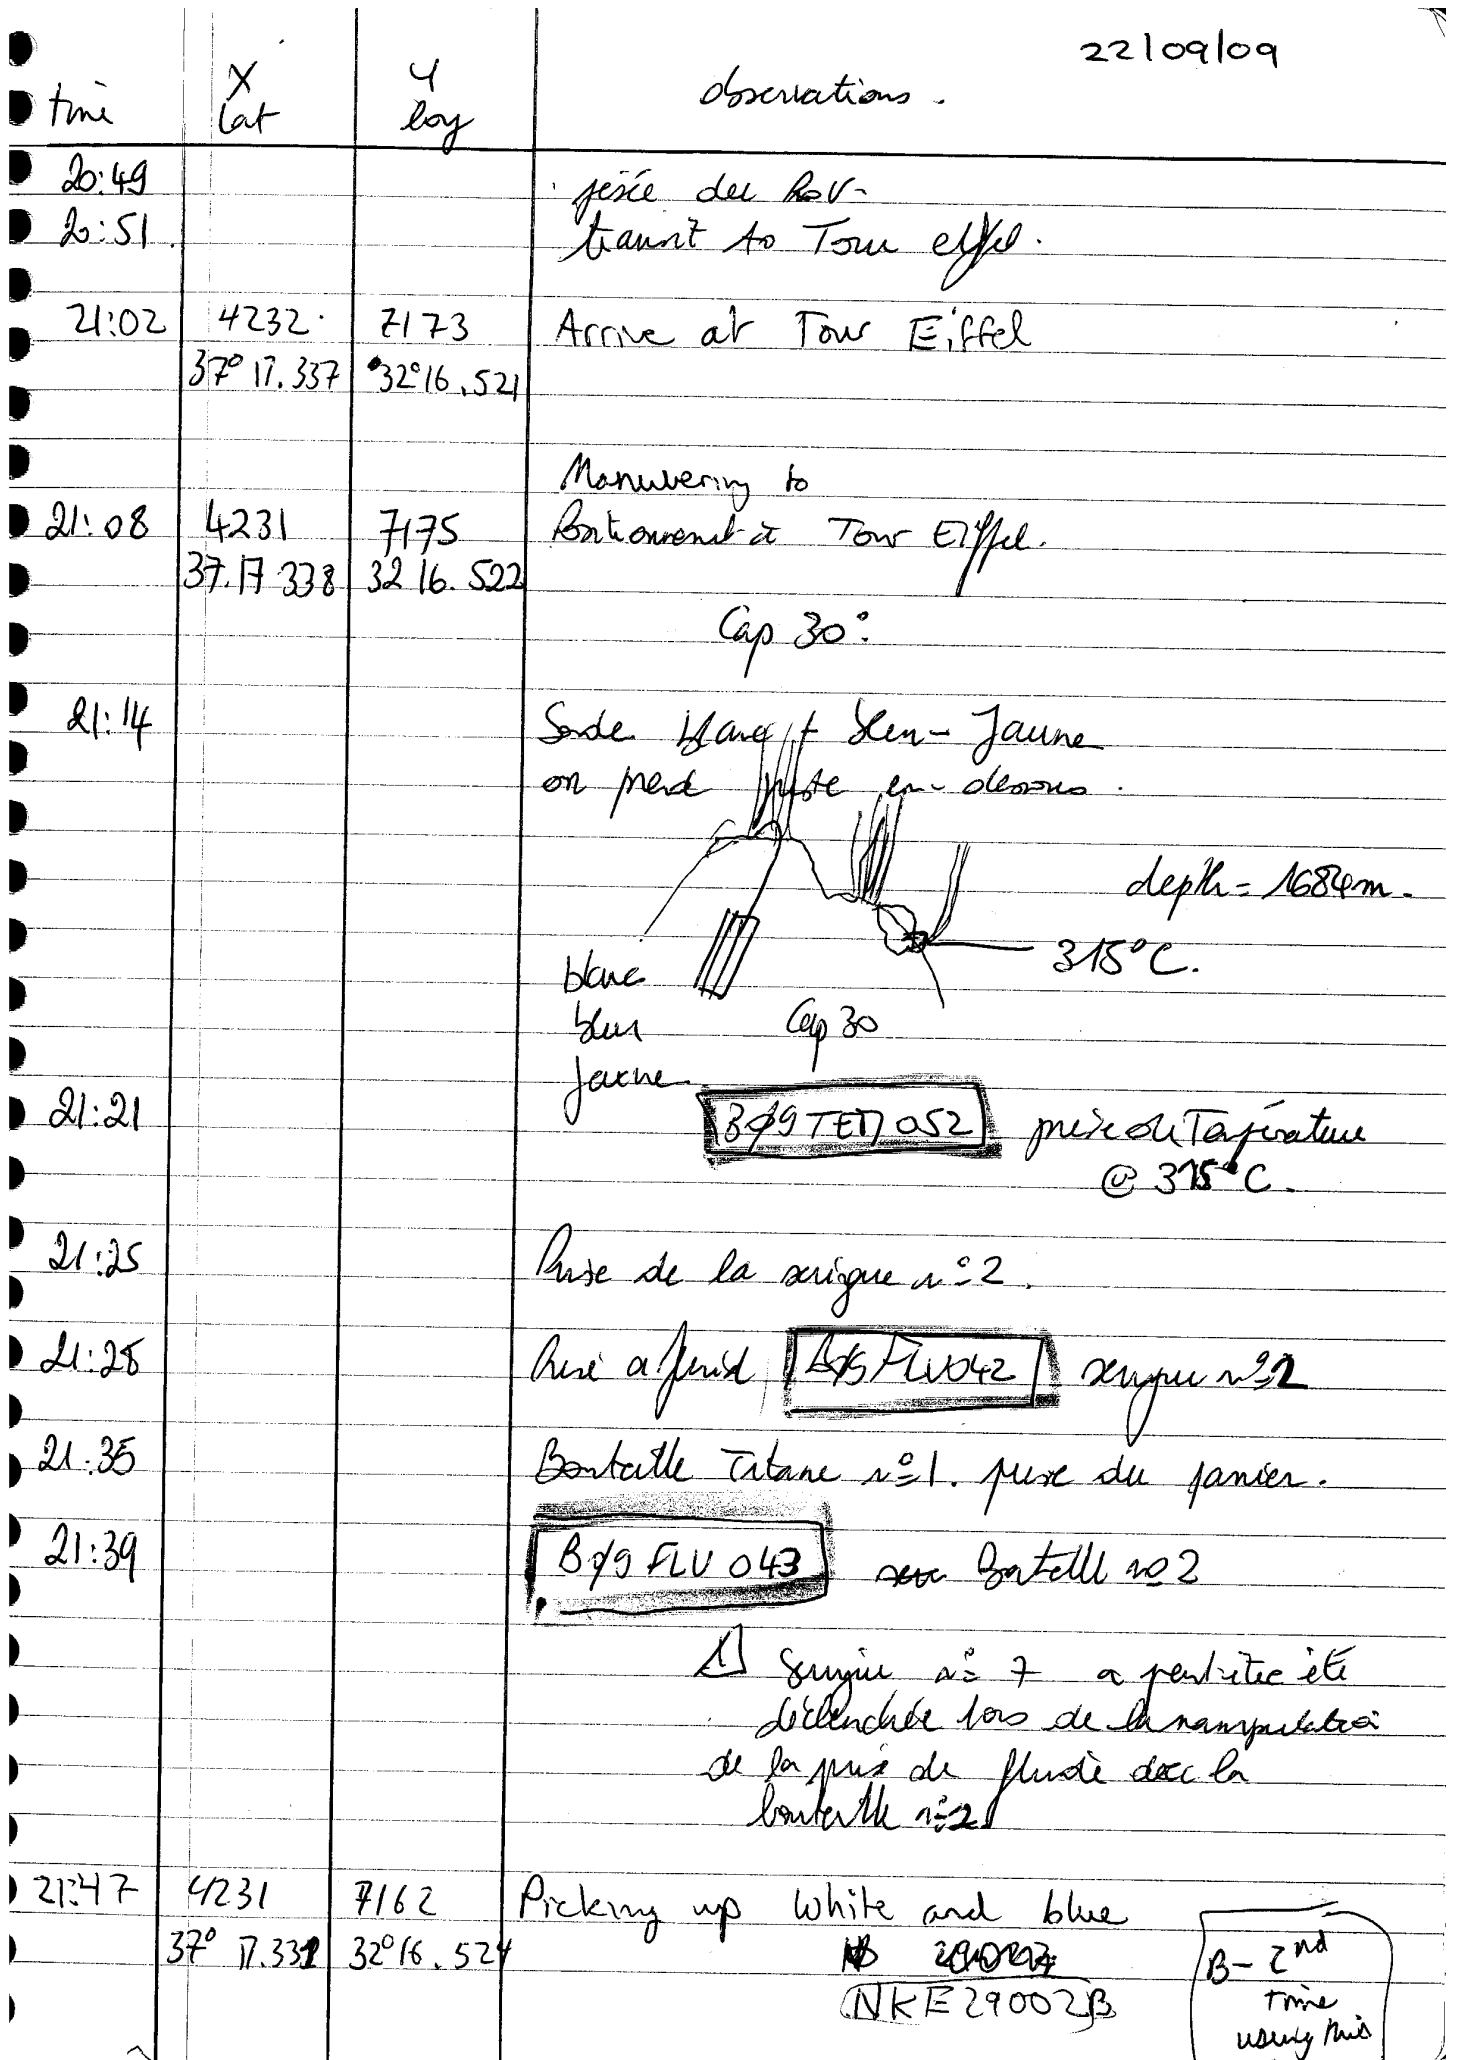 22/09/09
time X lat Y long observations.
20:49 pesée du ROV-
20:51 transit to Tour eiffel.
21:02 4232 7173 Arrive at Tour Eiffel
37° 17.337 32° 16.521
Manuvering to
21:08 4231 7175 Tour Eiffel.
37.17 338 32 16. 522
Cap 30°.
21:14 Sonde blanc + bleu - Jaune
on prend juste en-dessous.
depth = 1684m.
315°C.
blanc
bleu Cap 30
Jaune
21:21 BØ9 TEM 052 prise de Température
@ 315°C.
21:25 Prise de la seringue n°2.
21:28 Prise de fluid BØ9 FLU042 seringue n°2
21:35 Bouteille Titane n°1. prise du panier.
21:39 BØ9 FLU 043 Bouteille no 2
Seringue n° 7 a peut-être été
déclenchée lors de la manipulation
de la prise de fluide avec la
bouteille n°2
21:47 4231 7162 Picking up White and blue
37° 17.332 32° 16. 524
NKE29002B
B- 2nd
time
using this